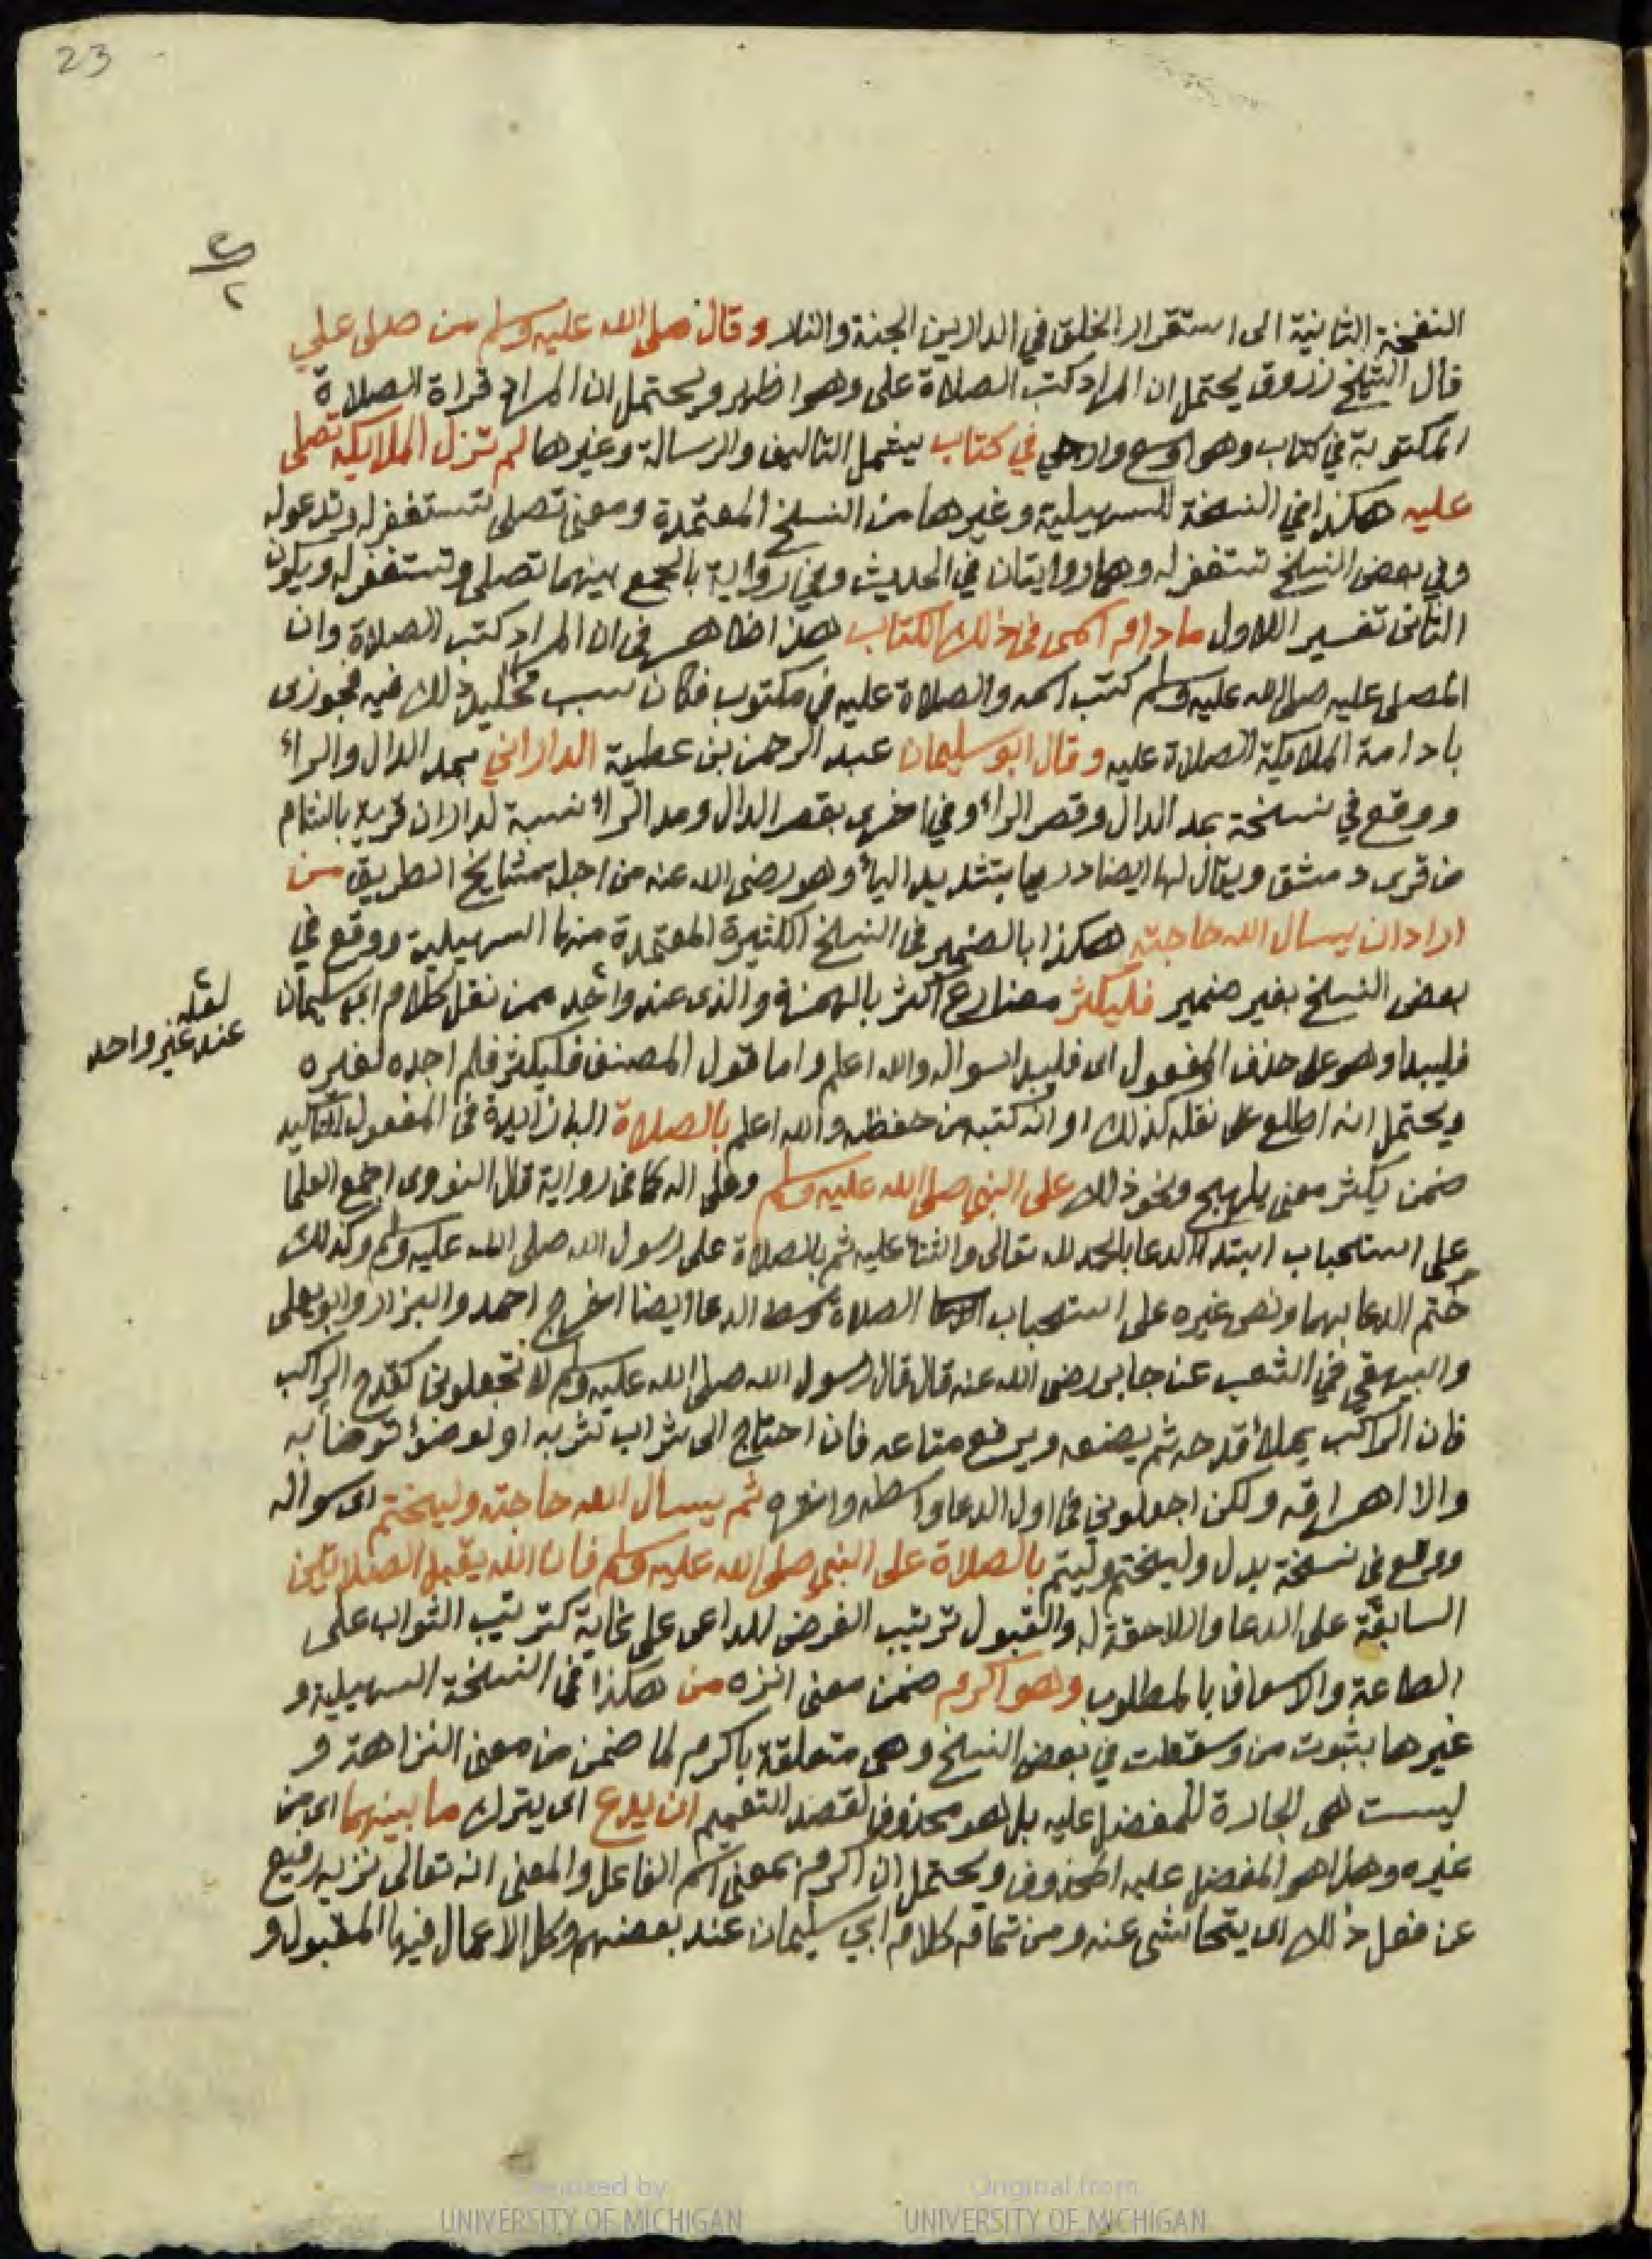 23
النفخة الثانية الى استقرار الخلق في الدارين الجنة والنار وقال صلى الله عليه وسلم من صلى علي
قال الشيخ زروق يحتمل ان المراد كتب الصلاة على وهو اظهر ويحتمل ان المراد قراة الصلاة
المكتوبة في كتاب وهو اوسع وارجى في كتاب يشمل التاليف والرسالة وغيرها لم تزل الملايكة تصلى
عليه هكذا في النسخة السهيلية وغيرها من النسخ المعتمدة ومعنى تصلى تستغفر له وتدعو له
وفي بعض النسخ تستغفر له وهما روايتان في الحديث وفي رواية بالجمع بينهما تصلى وتستغفر له ويكون
الثانى تفسير اللاول ما دام اسمى في ذلك الكتاب هذا ظاهر فى ان المراد كتب الصلاة وان
المصلى عليه صلى الله عليه وسلم كتب اسمه والصلاة عليه في مكتوب فكان سبب تخليد ذلك فيه فجوزى
بادامة الملايكة الصلاة عليه وقال ابو سليمان عبد الرحمن بن عطية الداراني بمد الدال والراء
ووقع في نسخة بمد الدال وقصر الراء وفي اخرى بقصر الدال ومد الراء نسبة لداران قرية بالشام
من قرى دمشق ويقال لها ايضا داريا بتشديد الياء وهو رضى الله عنه من اجلة مشايخ الطريق من
اراد ان يسال الله حاجته هكذا بالضمير فى النسخ الكثيرة المعتمدة منها السهيلية ووقع في
بعض النسخ بغير ضمير فليكثر مضارع اكثر بالهمزة والذى عند واحد ممن نقل كلام ابى سليمان
لقله
عند غير واحد
فليبدا وهو على حذف المفعول اى فليبدا سواله والله اعلم واما قول المصنف فليكثر فلم اجده لغيره
ويحتمل انه اطلع على نقله كذلك او انه كتبه من حفظه والله اعلم بالصلاة الباء زايدة في المفعول للتاكيد
ضمن يكثر معنى يلهج ونحو ذلك على النبي صلى الله عليه وسلم وعلى اله كما فى رواية قال النووى اجمع العلما
على استحباب ابتداء الدعا بالحمد لله تعالى والثناء عليه ثم بالصلاة على رسول الله صلى الله عليه وسلم وكذلك
ختم الدعا بهما ونص غيره على استحباب الصلاة وسط الدعا ايضا اخرج احمد والبزار وابو يعلى
والبيهقي في الشعب عن جابر رضى الله عنه قال قال رسول الله صلى الله عليه وسلم لا تجعلونى كقدح الراكب
فان الراكب يملا قدحه ثم يضعه ويرفع متاعه فان احتاج الى شراب شربه او لوضوء توضا به
والا اهراقه ولكن اجعلوني فى اول الدعا واوسطه واخره ثم يسال الله حاجته وليختم اى سواله
ووقع في نسخة بدل وليختم وليتم بالصلاة على النبي صلى الله عليه وسلم فان الله يقبل الصلاتين
السابقة على الدعا واللاحقة له والقبول ترتيب الغرض للداعى على غاية كترتيب الثواب على
الطاعة والاسعاف بالمطلوب وهو اكرم ضمن معنى انزه من هكذا في النسخة السهيلية و
غيرها بثبوت من وسقطت في بعض النسخ وهى متعلقة باكرم لما ضمن من معنى النزاهة و
ليست هى الجارة للمفضل عليه بل هو محذوف لقصد التعميم ان يدع اى يترك ما بينهما اى من
غيره وهذا هو المفضل عليه المحذوف ويحتمل ان اكرم بمعنى اسم الفاعل والمعنى انه تعالى نزيه رفيع
عن فعل ذلك اى يتحاشى عنه ومن تمام كلام ابي سليمان عند بعضهم وكل الاعمال فيها المقبول و
Digitized by
UNIVERSITY OF MICHIGAN
Original from
UNIVERSITY OF MICHIGAN